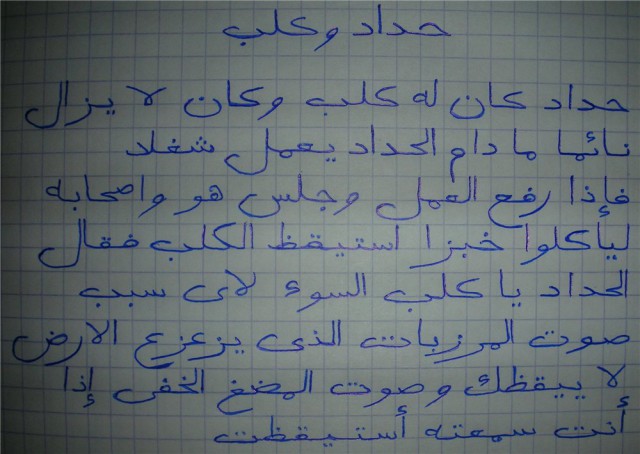 حداد وكلب
حداد كان له كلب وكان لا يزال
نائما ما دام الحداد يعمل شغلد
فإذا رفع العمل وجلس هو واصحابه
ليأكلوا خبزا استيقظ الكلب فقال
الحداد يا كلب السوء لاى سبب
صوت المرزبات الذى يزعزع الارض
لا ييقظك وصوت المضغ الخفى إذا
أنت سمعته أستيقظت